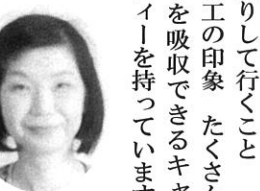 りして行くこと
工の印象　たくさん
を吸収できるキャ
ィーを持っています